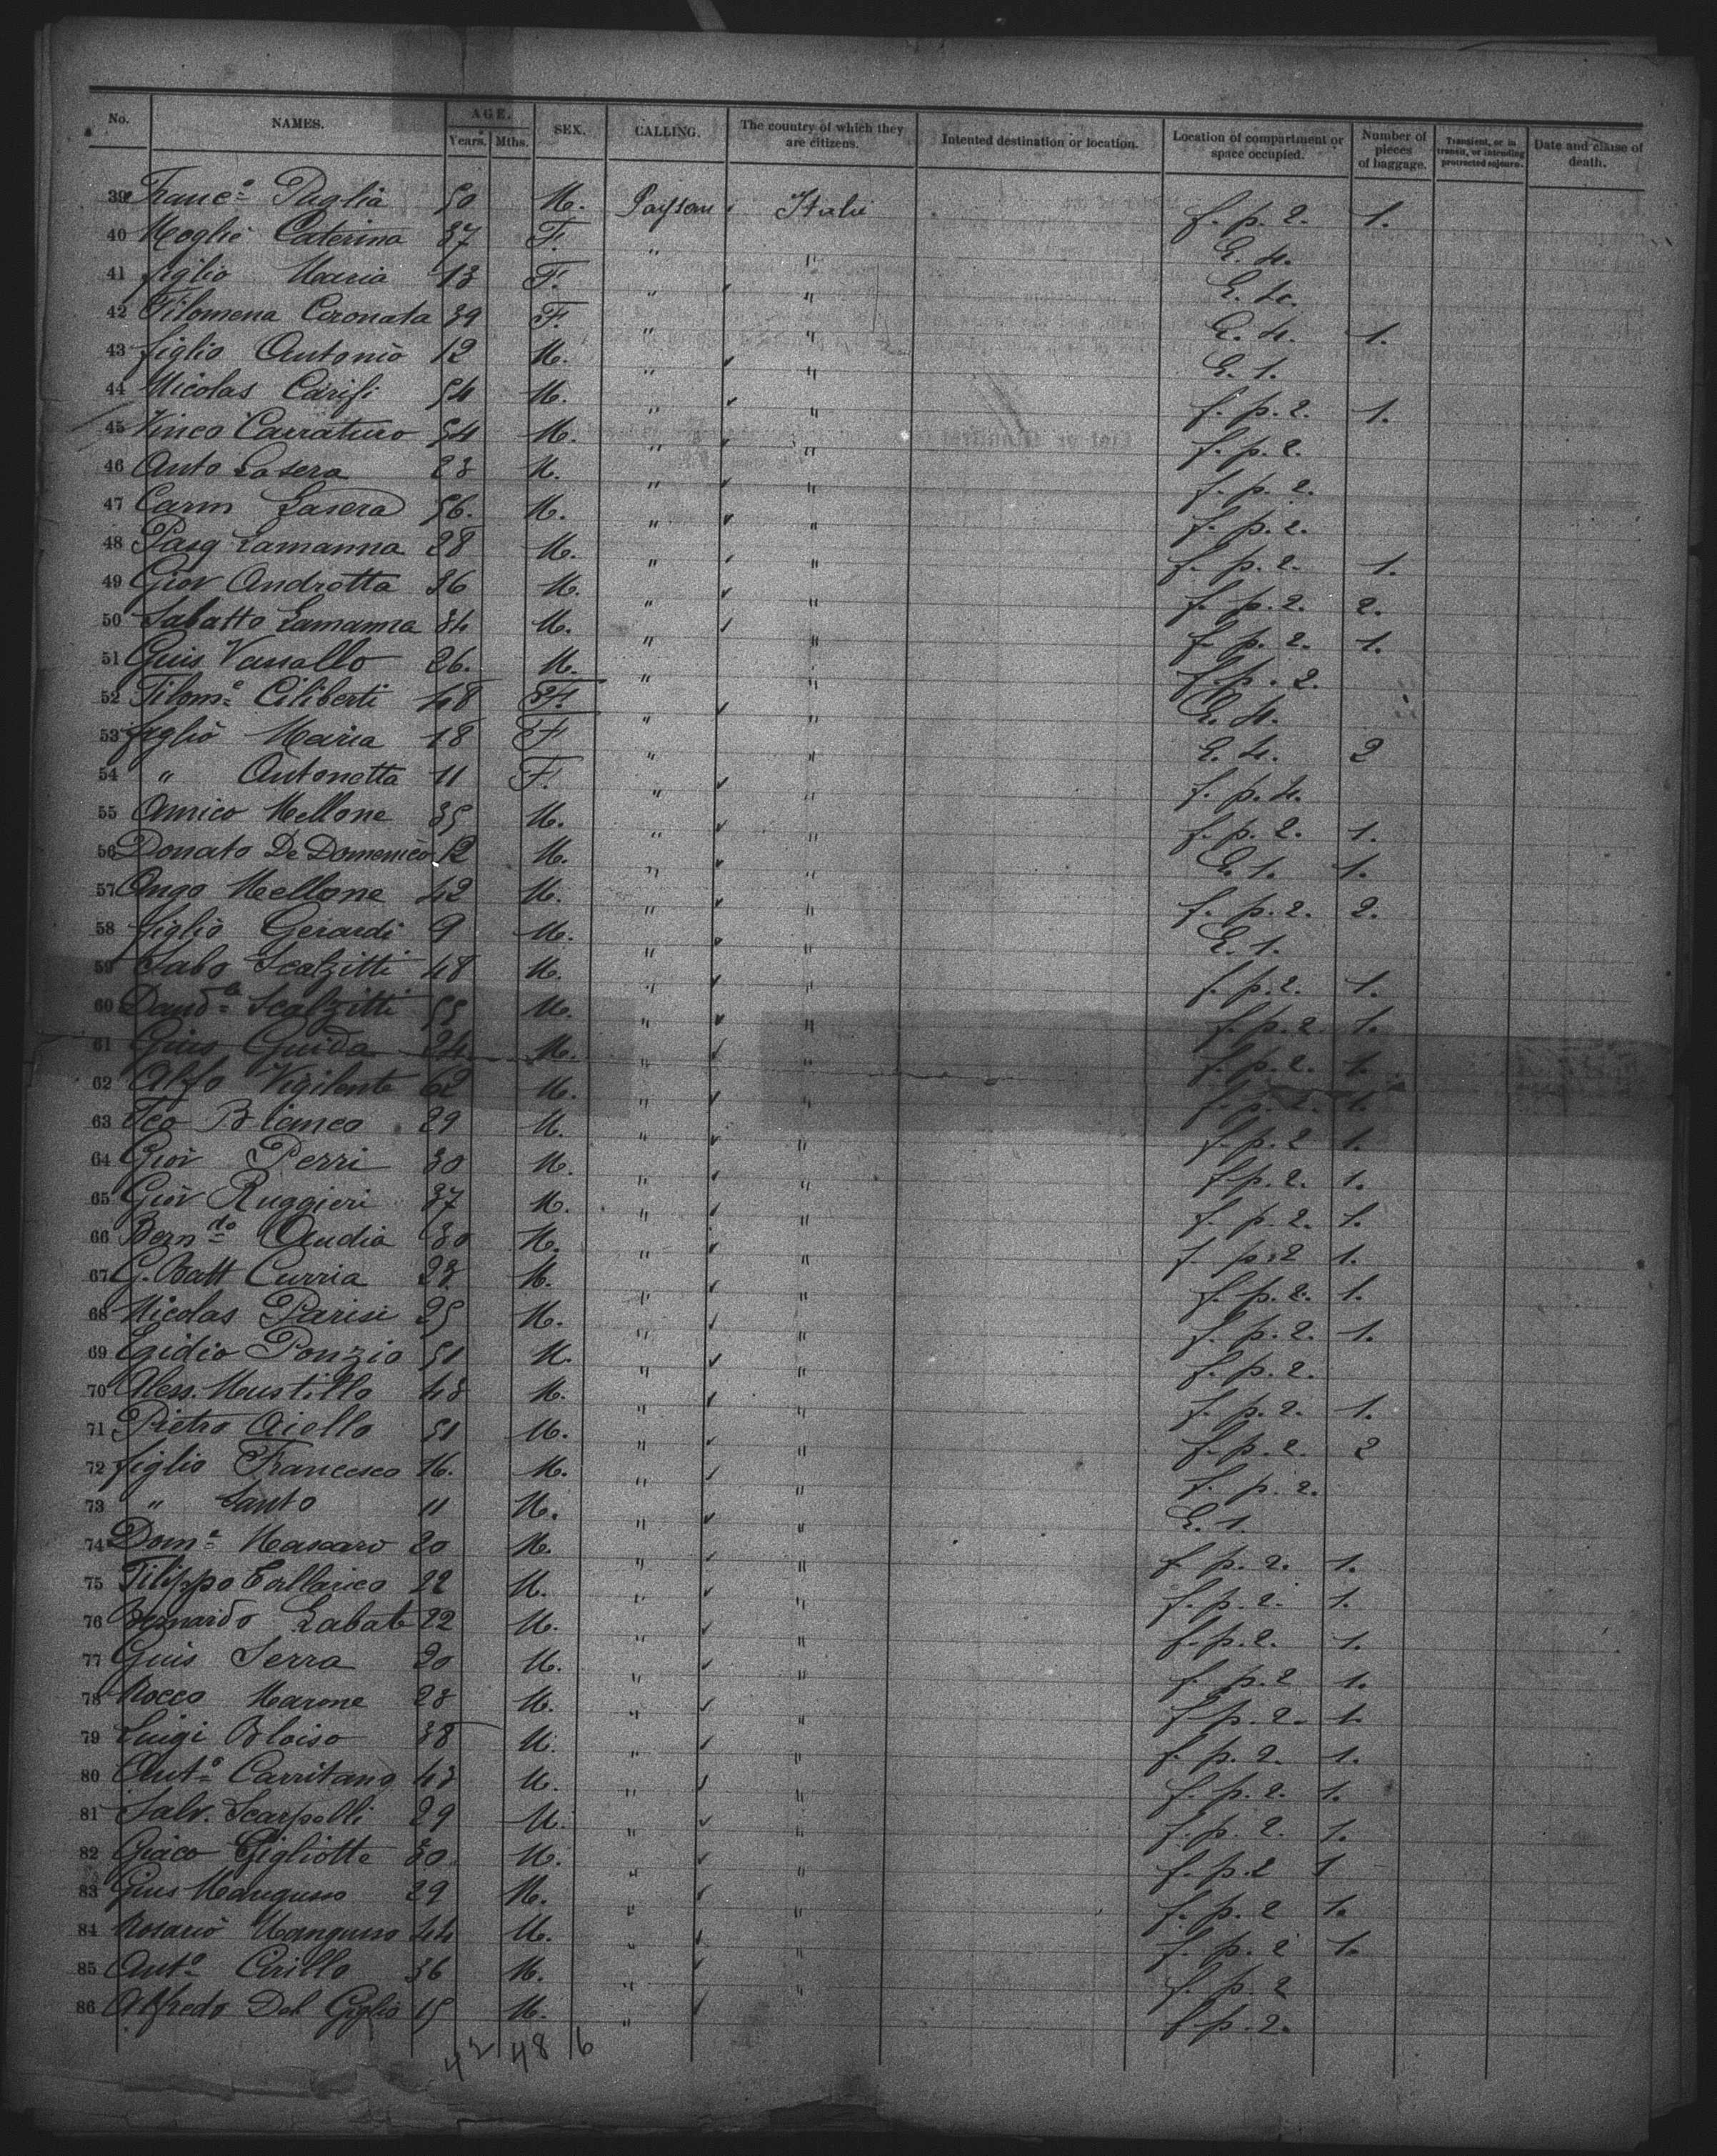 No. NAMES. AGE. Years. Mths. SEX. CALLING. The country of which they are citizens. Intented destination or location. Location of compartment or space occupied. Number of pieces of baggage. Transient, or in transit, or intending protracted sojourn. Date and clause of death.
39 Franc.o Puglia 50 M. Paysan Italie f. p. 2. 1.
40 Moglie Caterina 37 F. " " E. 4.
41 figlio Maria 13 F. " " E. 4.
42 Filomena Coronata 39 F. " " E. 4. 1.
43 figlio Antonio 12 M. " " E. 1.
44 Nicolas Carifi 54 M. " " f. p. 2. 1.
45 Vinco Carraturo 54 M. " " f. p. 2.
46 Anto Lasera 23 M. " " f. p. 2.
47 Carm Lasera 56. M. " " f. p. 2.
48 Pasq Lamanna 28 M. " " f. p. 2. 1.
49 Giov Androtta 36 M. " " f. p. 2. 2.
50 Sabatto Lamanna 34 M. " " f. p. 2. 1.
51 Guis Vassallo 26. M. " " f. p. 2.
52 Filom.a Ciliberti 48 F. " " E. 4.
53 figlio Maria 18 F " " E. 4. 2
54 " Antonetta 11 F. " " f. p. 4.
55 Amico Mellone 35 M. " " f. p. 2. 1.
56 Donato De Domenico 12 M. " " E. 1. 1.
57 Ango Mellone 42 M. " " f. p. 2. 2.
58 figlio Gerardi 9 M. " " E. 1.
59 Sabo Scalzitti 48 M. " " f. p. 2. 1.
60 Scalzitti 55 M. " " f. p. 2 1.
61 Guis Guida 24 M. " " f. p. 2. 1.
62 Alfo Vigilente 62 M. " " f. p. 2. 1.
63 Fco Bianco 29 M. " " f. p. 2 1.
64 Giov Perri 30 M. " " f. p. 2. 1.
65 Giov Ruggieri 37 M. " " f. p. 2. 1.
66 Bern.do Audia 30 M. " " f. p. 2 1.
67 G. Batt Curria 28 M. " " f. p. 2. 1.
68 Nicolas Parisi 25 M. " " f. p. 2. 1.
69 Egidio Ponzio 51 M. " " f. p. 2.
70 Aless. Mustillo 48 M. " " f. p. 2. 1.
71 Pietro Aiello 51 M. " " f. p. 2. 2
72 figlio Francesco 16. M. " " f. p. 2.
73 " Santo 11 M. " " E. 1.
74 Dom.o Mascaro 20 M. " " f. p. 2. 1.
75 Filippo Tallarico 22 M. " " f. p. 2. 1.
76 Bernardo Labate 22 M. " " f. p. 2. 1.
77 Guis Serra 20 M. " " f. p. 2 1.
78 Rocco Marone 28 M. " " f. p. 2. 1.
79 Luigi Bloiso 38 M. " " f. p. 2. 1.
80 Ant.o Carritano 43 M. " " f. p. 2. 1.
81 Salv. Scarpelli 29 M. " " f. p. 2. 1.
82 Giaco Gigliotte 30. M. " " f. p. 2 1
83 Guis Mangusso 29 M. " " f. p. 2 1.
84 Rosario Mangusso 44 M. " " f. p. 2 1.
85 Ant.o Cirillo 36 M. " " f. p. 2
86 Alfredo Del Giglio 15 M. " f. p. 2.
42 48 6